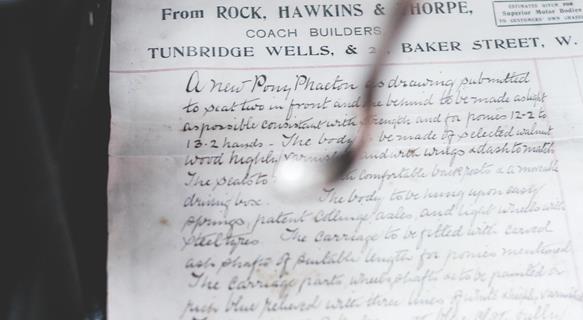 From ROCK, HAWKINS & THORPE,
COACH BUILDERS
TUNBRIDGE WELLS, & BAKER STREET, W.
ESTIMATES GIVEN FOR
Superior Motor Bodies
TO CUSTOMERS' OWN
A new Pony Phaeton as drawing submitted
to seat two in front and one behind to be made as light
as possible consistent with strength and for ponies 12-2 to
13-2 hands - The body be made of selected walnut
wood highly varnished and with wings & dash to match
The seats to with comfortable backrests & a movable
driving box. The body to be hung upon easy
springs, patent Collinge axles, and light wheels with
steel tyres. The carriage to be fitted with curved
ash shafts of suitable length for ponies mentioned
The carriage parts, wheels shafts &c to be painted a
rich blue relieved with three lines of white & highly